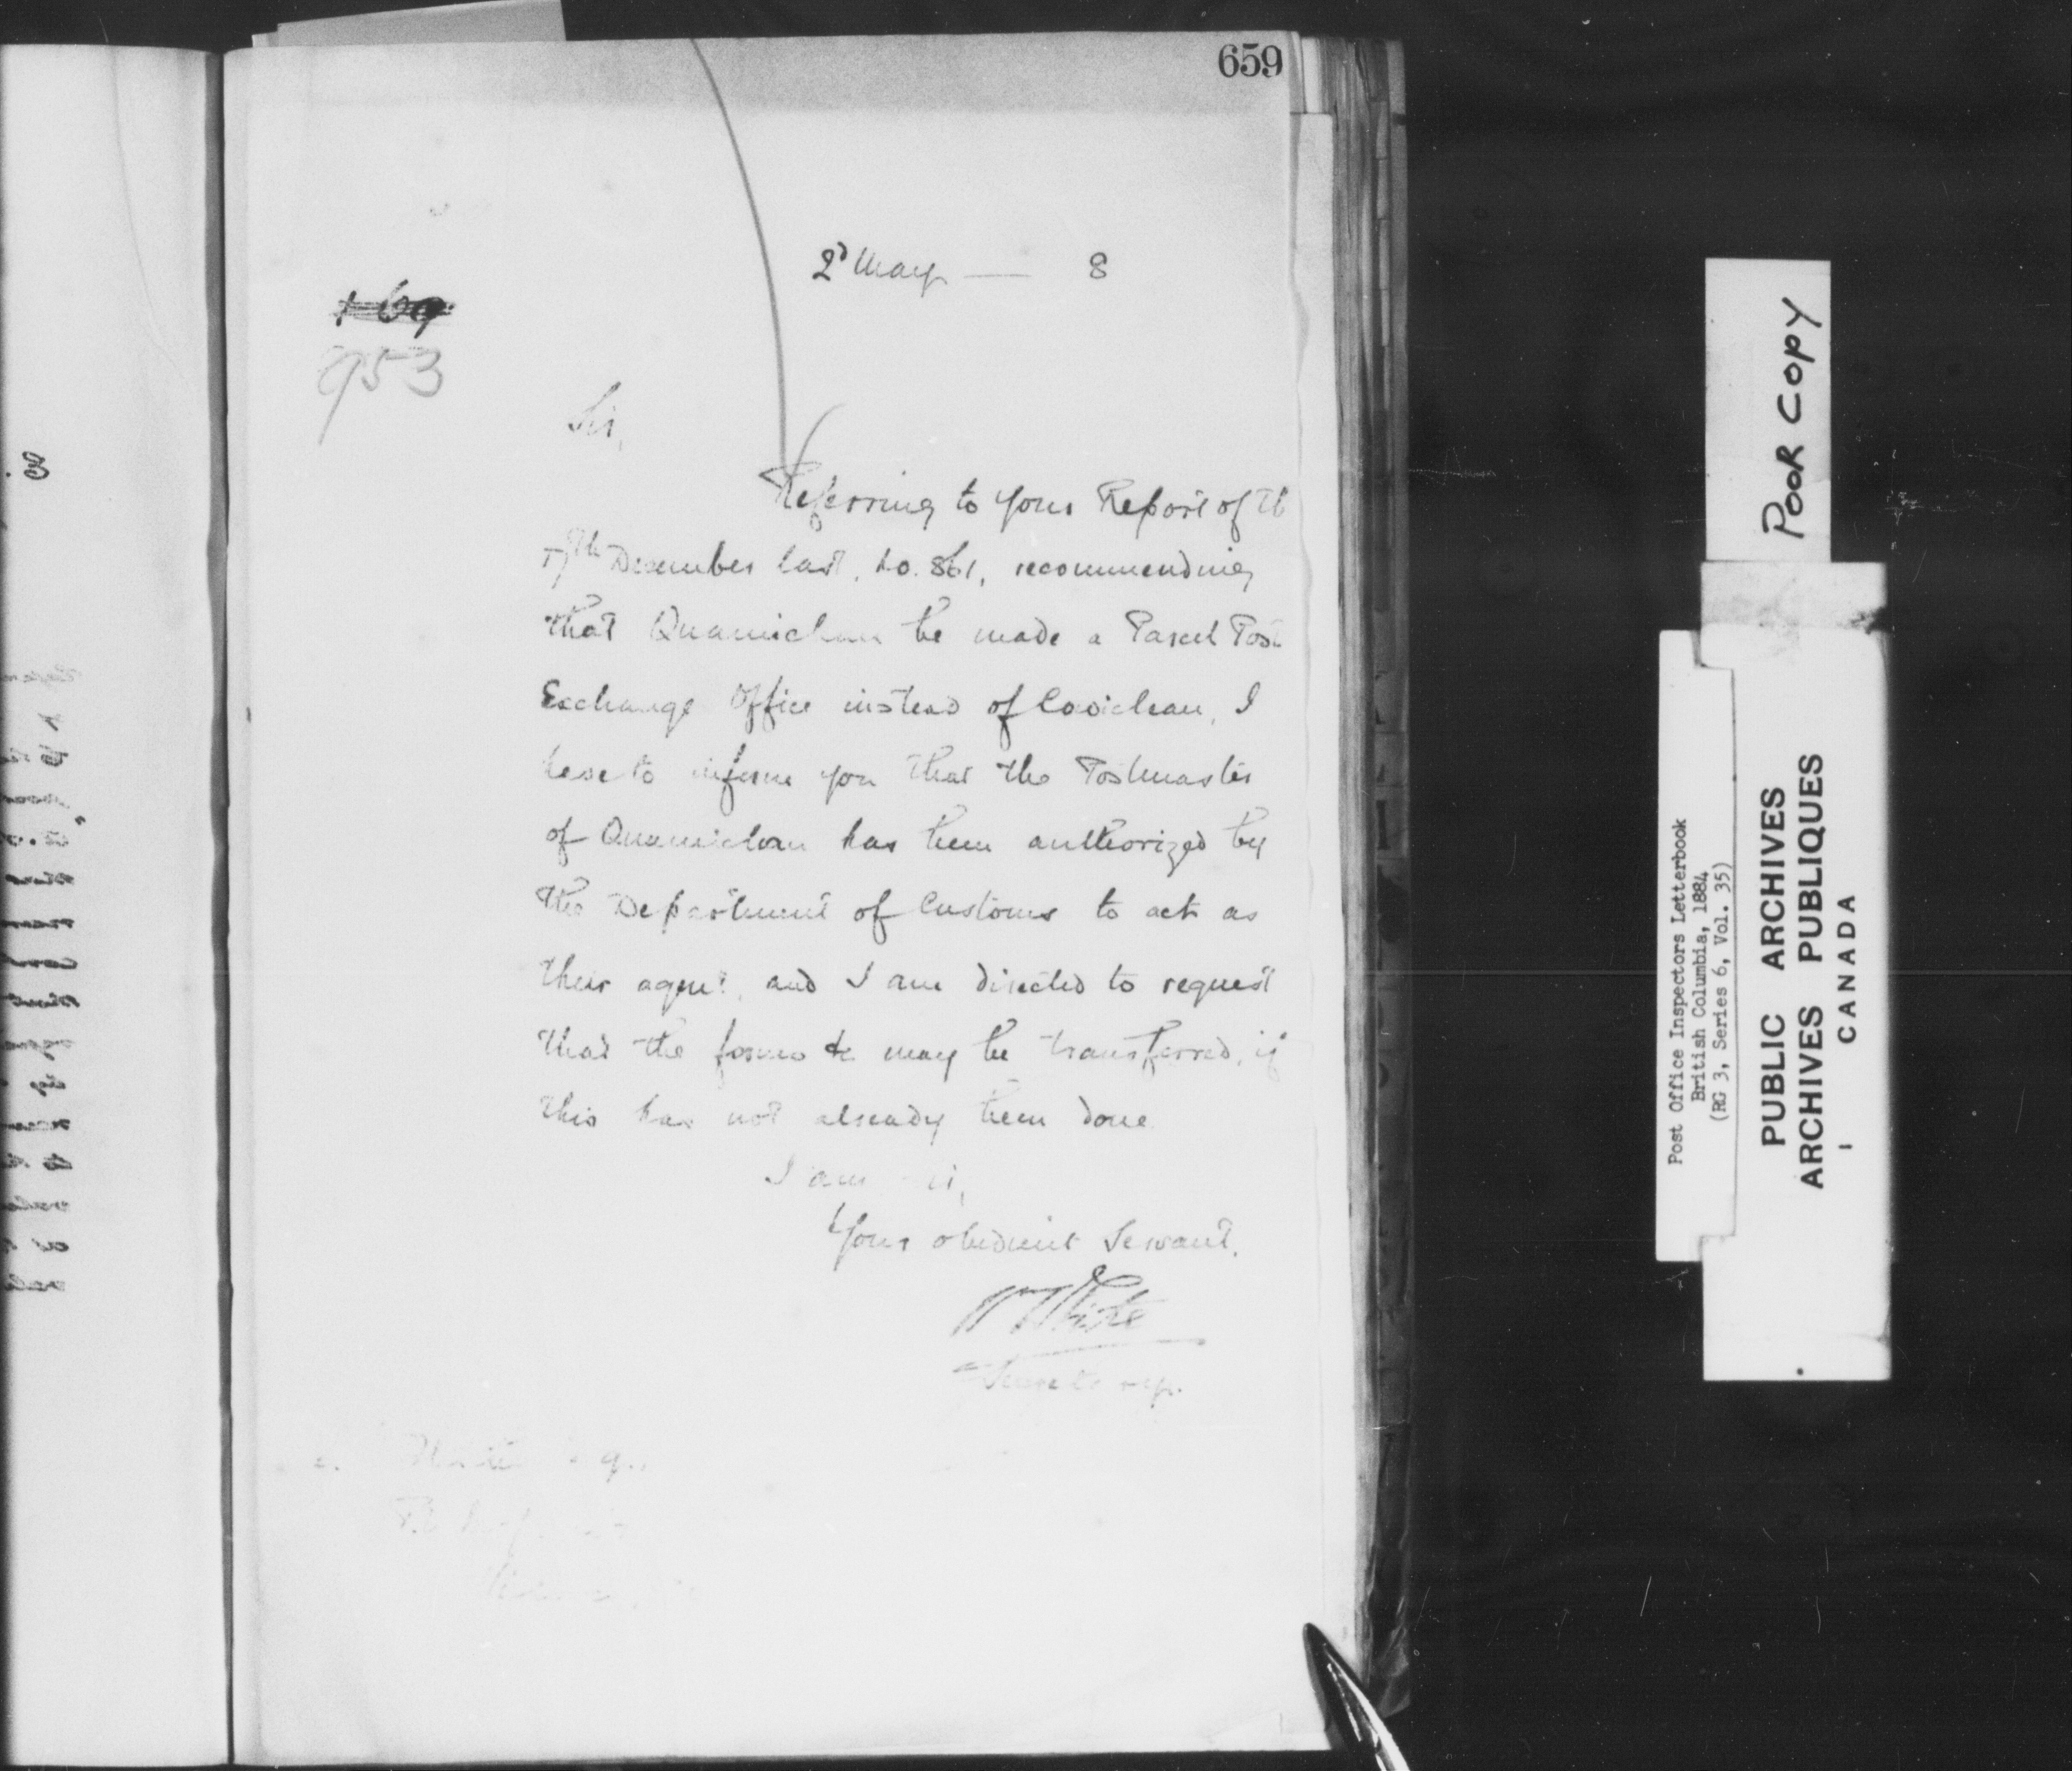 659
2d May — 8
953
Sir,
Referring to your Report of the
17th December last, No. 861, recommending
that Quamichan be made a Parcel Post
Exchange Office instead of Cowichan, I
have to inform you that the Postmaster
of Quamichan has been authorized by
the Department of Customs to act as
their agent, and I am directed to request
that the forms &c may be transferred, if
this has not already been done
I am Sir,
Your obedient Servant.
W White
Secretary.
POOR COPY
Post Office Inspectors Letterbook
British Columbia, 1884
(RG 3, Series 6, Vol. 35)
PUBLIC ARCHIVES
ARCHIVES PUBLIQUES
CANADA